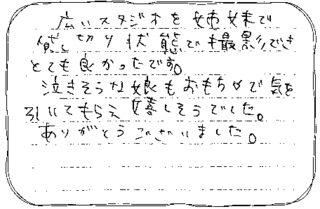 広いスタジオを姉妹で
貸し切り状態で撮影でき
とても良かったです。
泣きそうな娘もおもちゃで気を
引いてもらえ嬉しそうでした。
ありがとうございました。